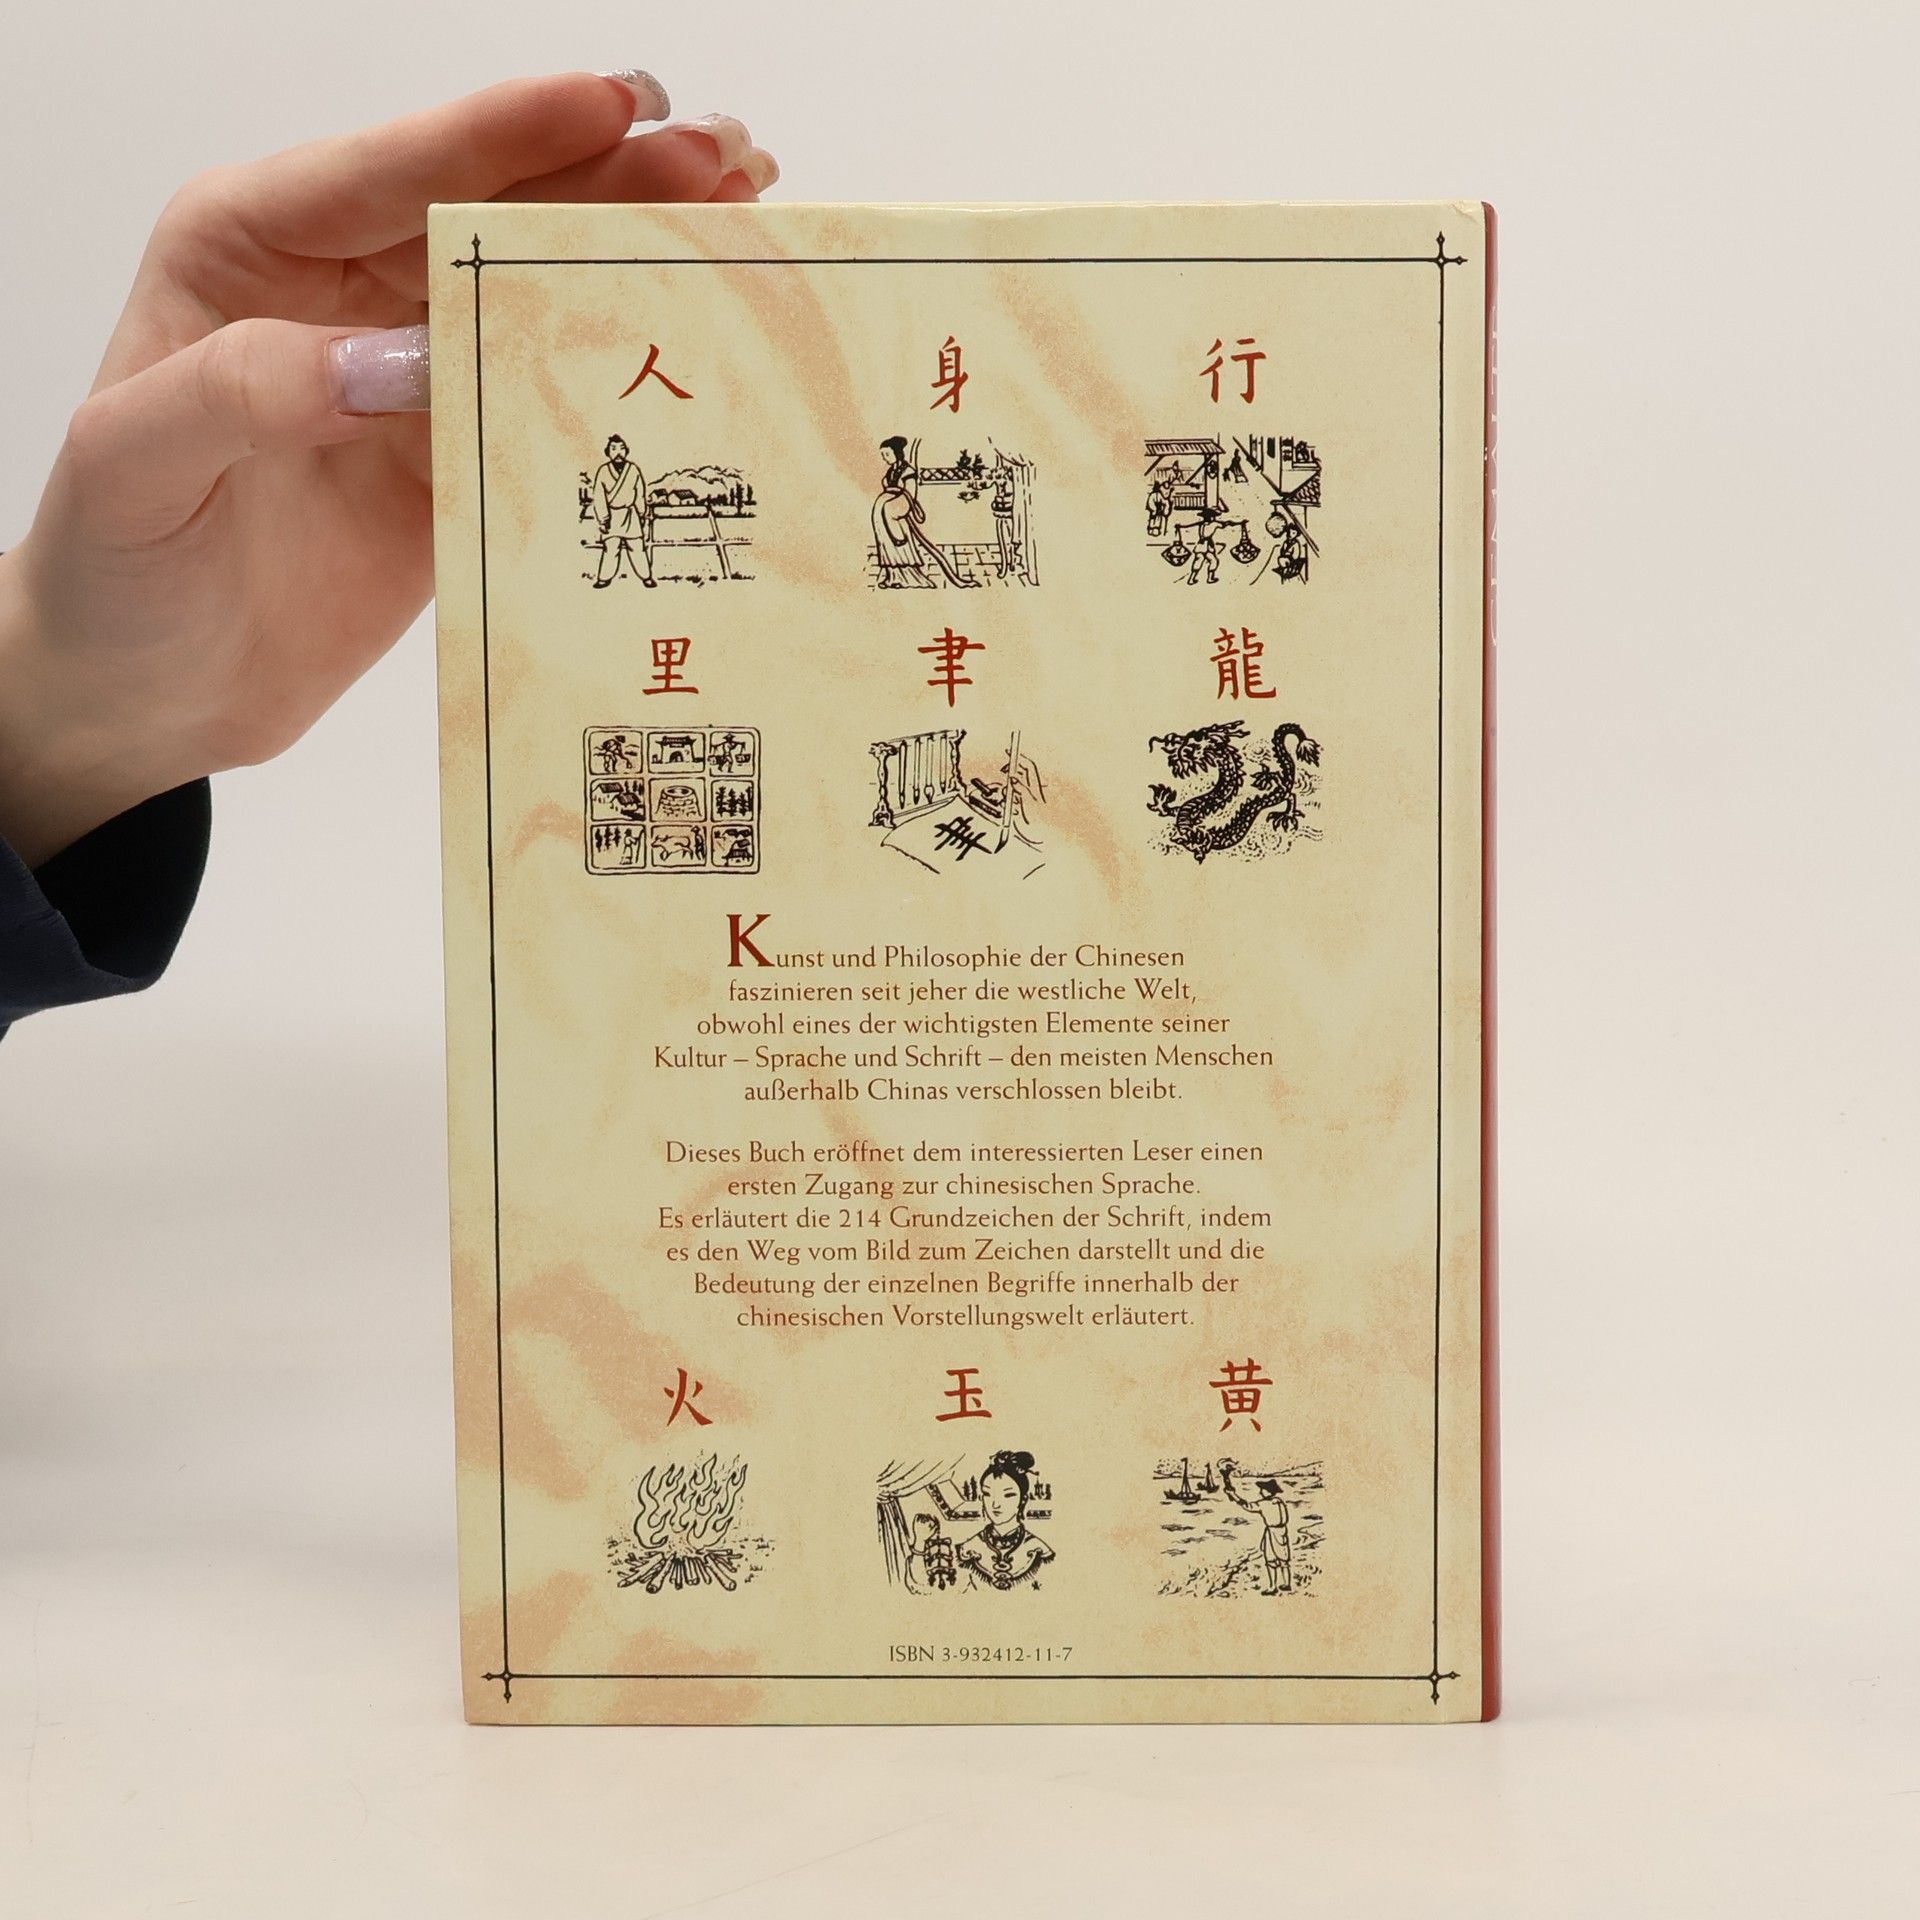 人 身 行
里 聿 龍
Kunst und Philosophie der Chinesen
faszinieren seit jeher die westliche Welt,
obwohl eines der wichtigsten Elemente seiner
Kultur – Sprache und Schrift – den meisten Menschen
außerhalb Chinas verschlossen bleibt.
Dieses Buch eröffnet dem interessierten Leser einen
ersten Zugang zur chinesischen Sprache.
Es erläutert die 214 Grundzeichen der Schrift, indem
es den Weg vom Bild zum Zeichen darstellt und die
Bedeutung der einzelnen Begriffe innerhalb der
chinesischen Vorstellungswelt erläutert.
火 玉 黄
ISBN 3-932412-11-7